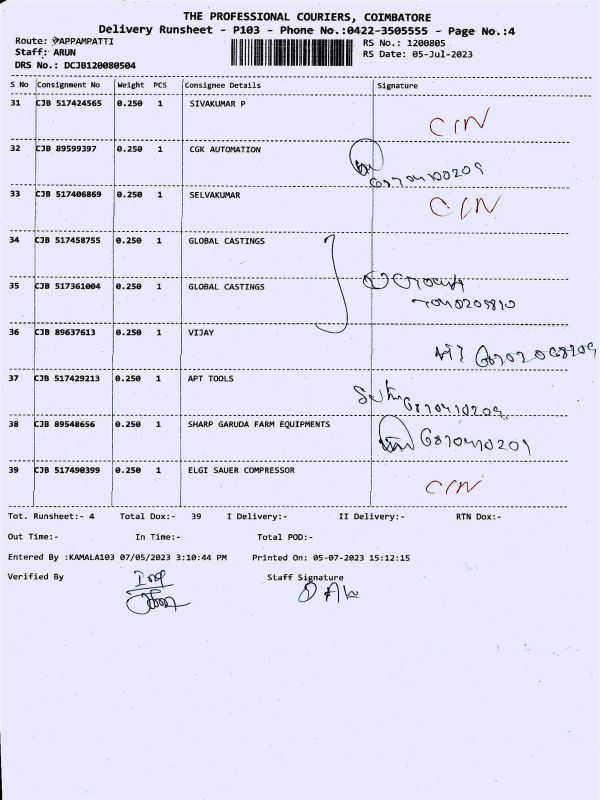 THE PROFESSIONAL COURIERS, COIMBATORE
Delivery Runsheet - P103 - Phone No.:0422-3505555 - Page No.:4
Route: PAPPAMPATTI RS No.: 1200805
Staff: ARUN RS Date: 05-Jul-2023
DRS No.: DCJB120080504
S No Consignment No Weight PCS Consignee Details Signature
31 CJB 517424565 0.250 1 SIVAKUMAR P C/N
32 CJB 89599397 0.250 1 CGK AUTOMATION
33 CJB 517406869 0.250 1 SELVAKUMAR C/N
34 CJB 517458755 0.250 1 GLOBAL CASTINGS
35 CJB 517361004 0.250 1 GLOBAL CASTINGS
36 CJB 89637613 0.250 1 VIJAY
37 CJB 517429213 0.250 1 APT TOOLS
38 CJB 89548656 0.250 1 SHARP GARUDA FARM EQUIPMENTS
39 CJB 517490399 0.250 1 ELGI SAUER COMPRESSOR C/N
Tot. Runsheet:- 4 Total Dox:- 39 I Delivery:- II Delivery:- RTN Dox:-
Out Time:- In Time:- Total POD:-
Entered By :KAMALA103 07/05/2023 3:10:44 PM Printed On: 05-07-2023 15:12:15
Verified By Staff Signature